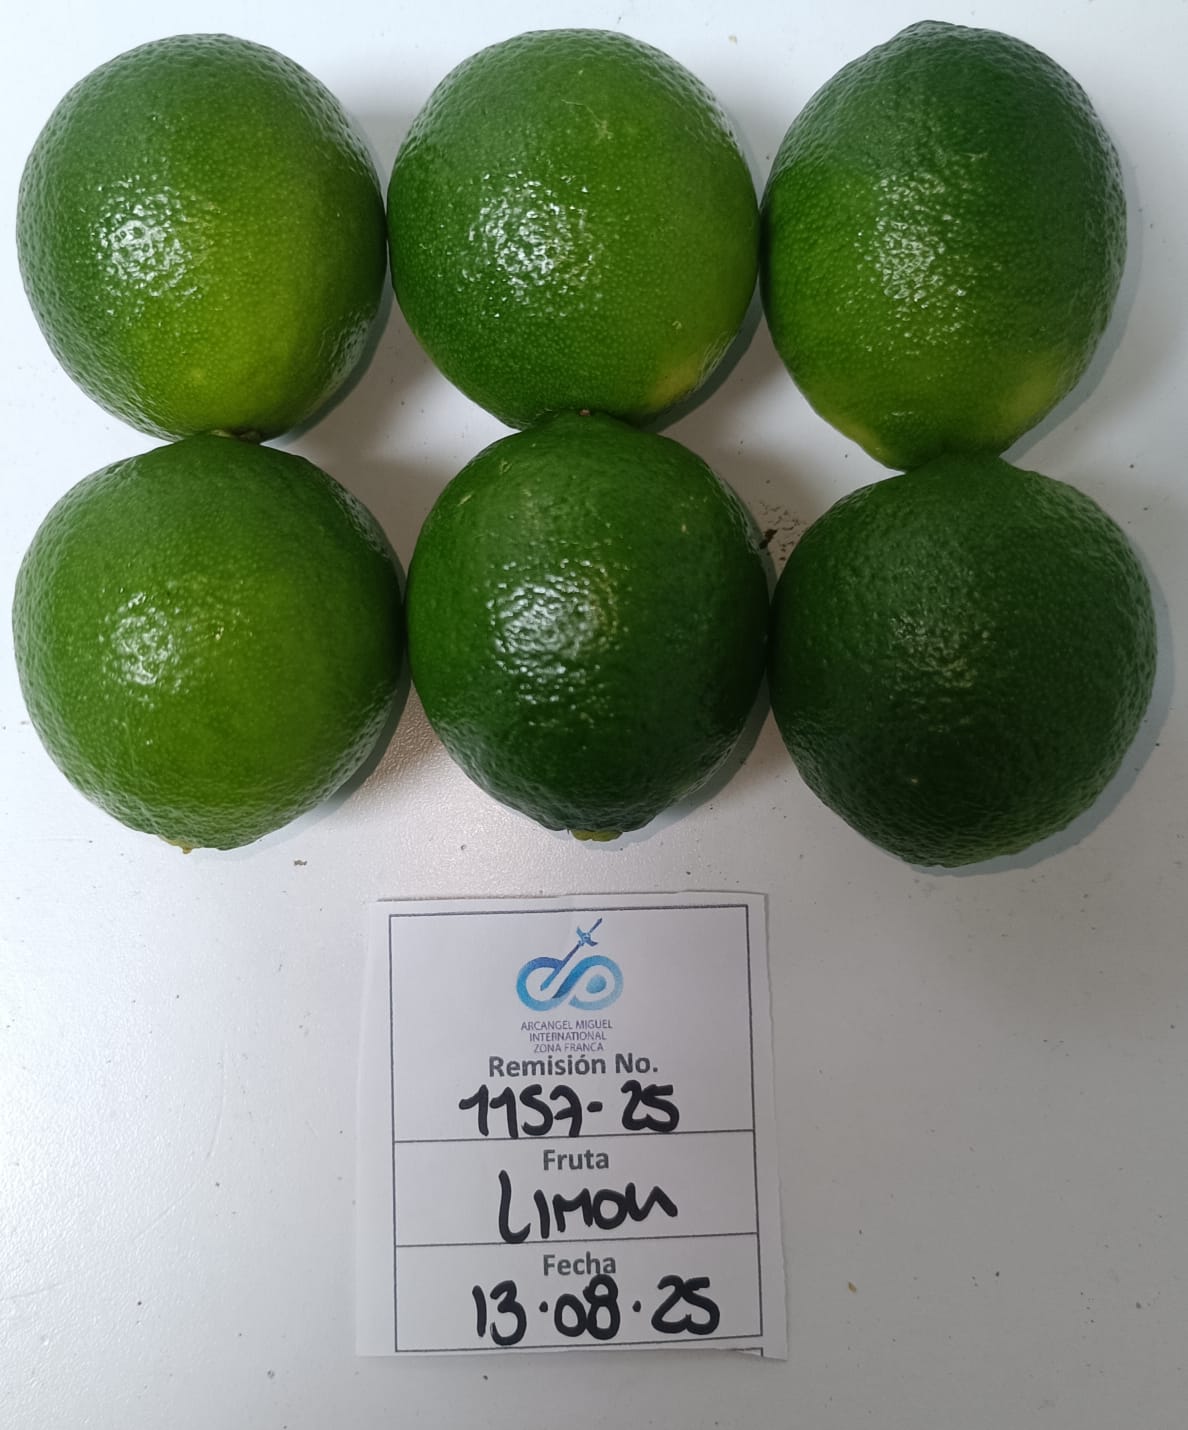 ARCANGEL MIGUEL
INTERNATIONAL
ZONA FRANCA
Remisión No.
1157-25
Fruta
LIMON
Fecha
13.08.25